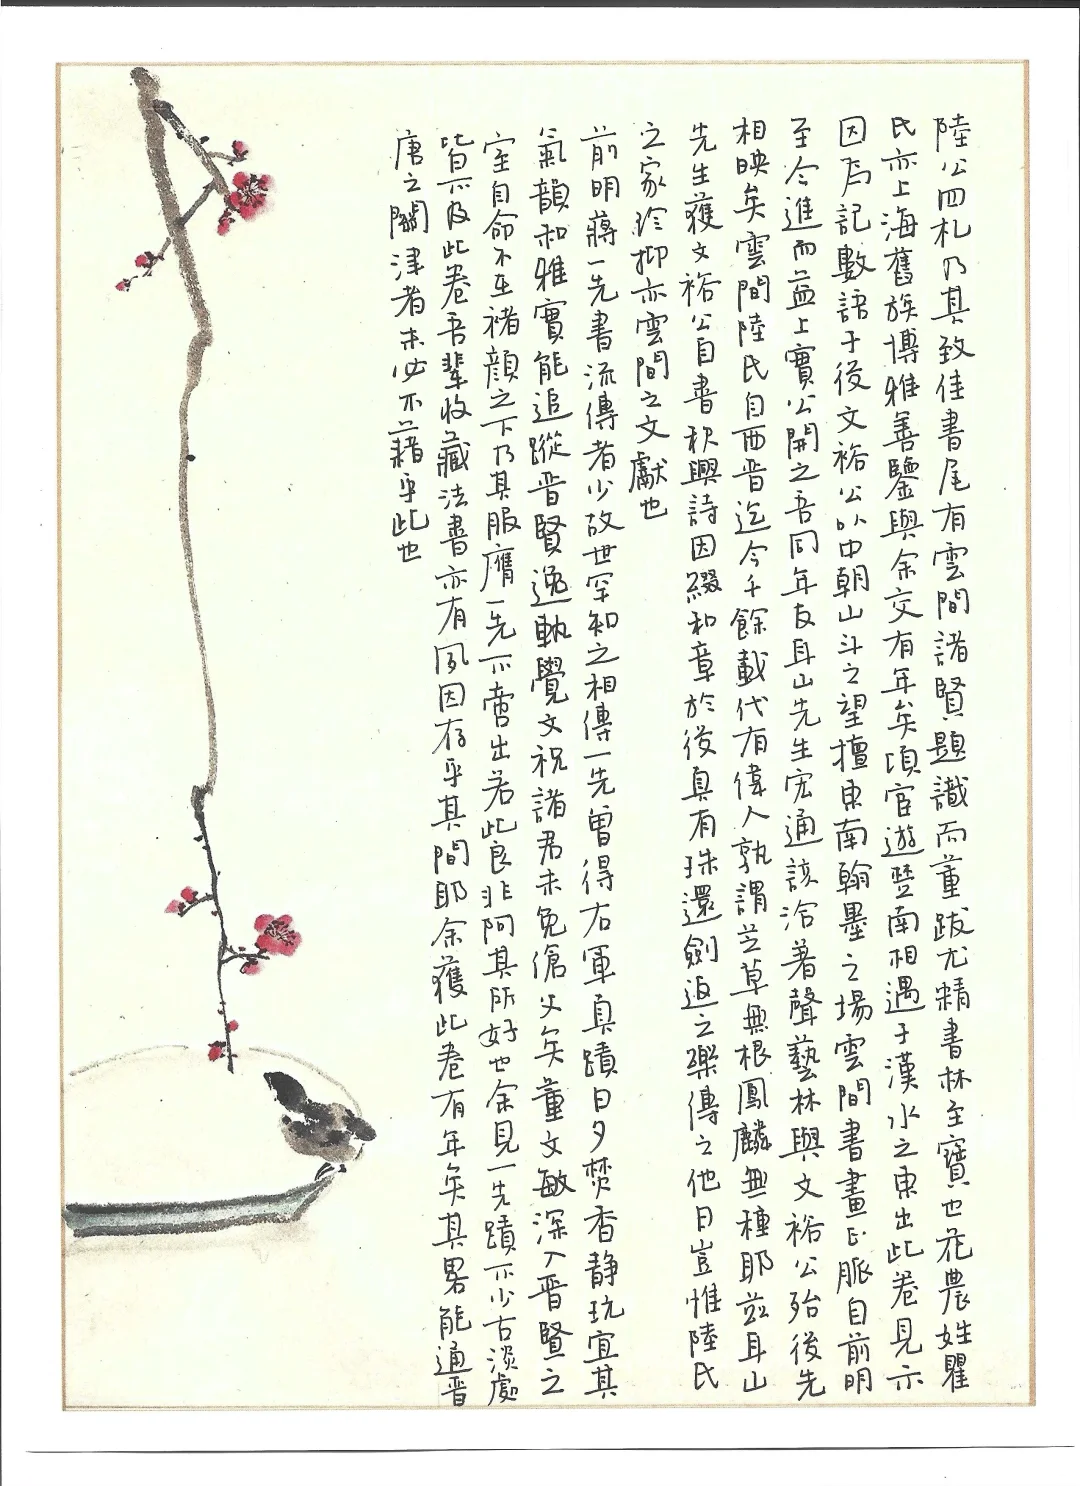 陸公四札乃其致佳書尾有雲間諸賢題識而董跋尤精書林至寶也花農姓瞿
氏亦上海舊族博雅善鑒與余交有年矣頃宦遊楚南相遇于漢水之東出此卷見示
因爲記數語于後文裕公以中朝山斗之望擅東南翰墨之場雲間書畫正脈自前明
至今進而益上實公開之吾同年友耳山先生宏通該洽著聲藝林與文裕公殆後先
相映矣雲間陸氏自西晉迄今千餘載代有偉人孰謂芝草無根鳳麟無種耶茲耳山
先生獲文裕公自書秋興詩因綴和章於後真有珠還劍返之樂傳之他日豈惟陸氏
之家珍抑亦雲間之文獻也
前明蔣一先書流傳者少故世罕知之相傳一先曾得右軍真蹟日夕焚香靜玩宜其
氣韻和雅實能追蹤晉賢逸軌覺文祝諸君未免傖父矣董文敏深入晉賢之
室自命不在褚顏之下乃其服膺一先不啻出若此良非阿其所好也余見一先蹟不少古淡處
皆不及此卷吾輩收藏法書亦有夙因存乎其間耶余獲此卷有年矣其畧能通晉
唐之關津者未必不藉乎此也